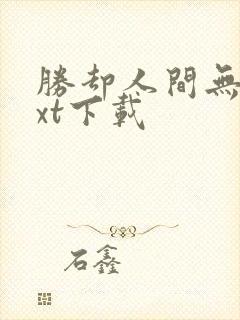 勝却人間無
xt下載
石鑫